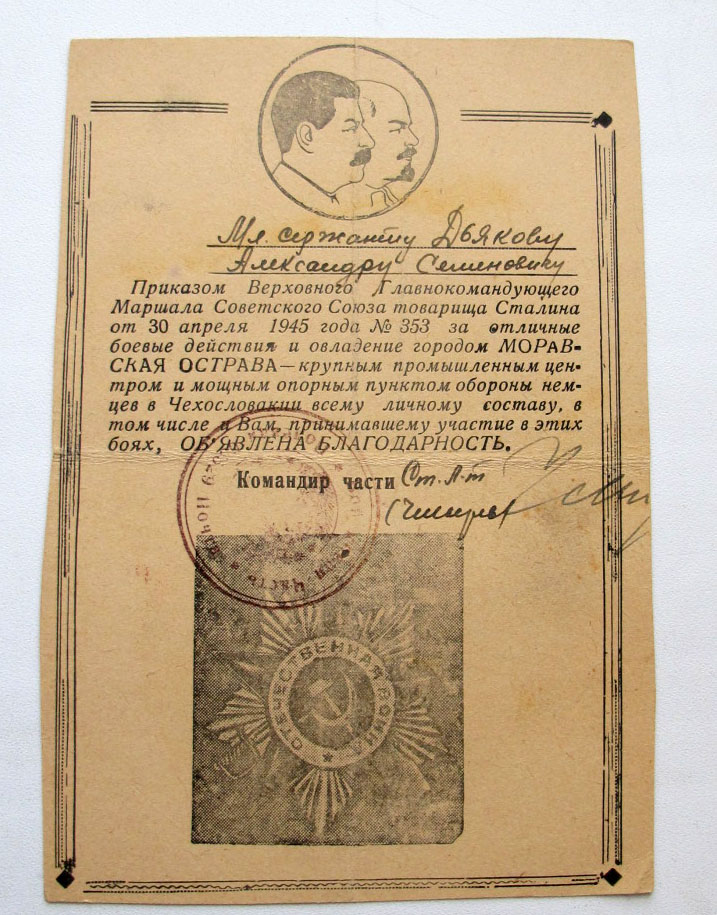 Мл. сержанту Дьякову
Александру Семеновичу
Приказом Верховного Главнокомандующего
Маршала Советского Союза товарища Сталина
от 30 апреля 1945 года № 353 за отличные
боевые действия и овладение городом МОРАВ-
СКАЯ ОСТРАВА—крупным промышленным цен-
тром и мощным опорным пунктом обороны нем-
цев в Чехословакии всему личному составу, в
том числе и Вам, принимавшему участие в этих
боях, ОБ'ЯВЛЕНА БЛАГОДАРНОСТЬ.
Командир части Ст. л-т
часть
ОТЕЧЕСТВЕННАЯ ВОЙНА